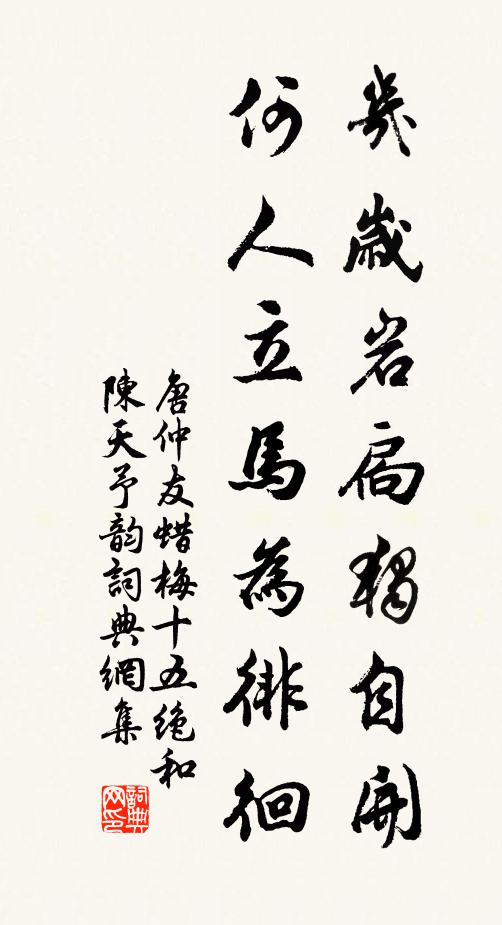 幾歲岩扃獨自開
何人立馬為徘徊
唐仲友蜡梅十五絕和
陳天予韵詞典網集
詞典
网印